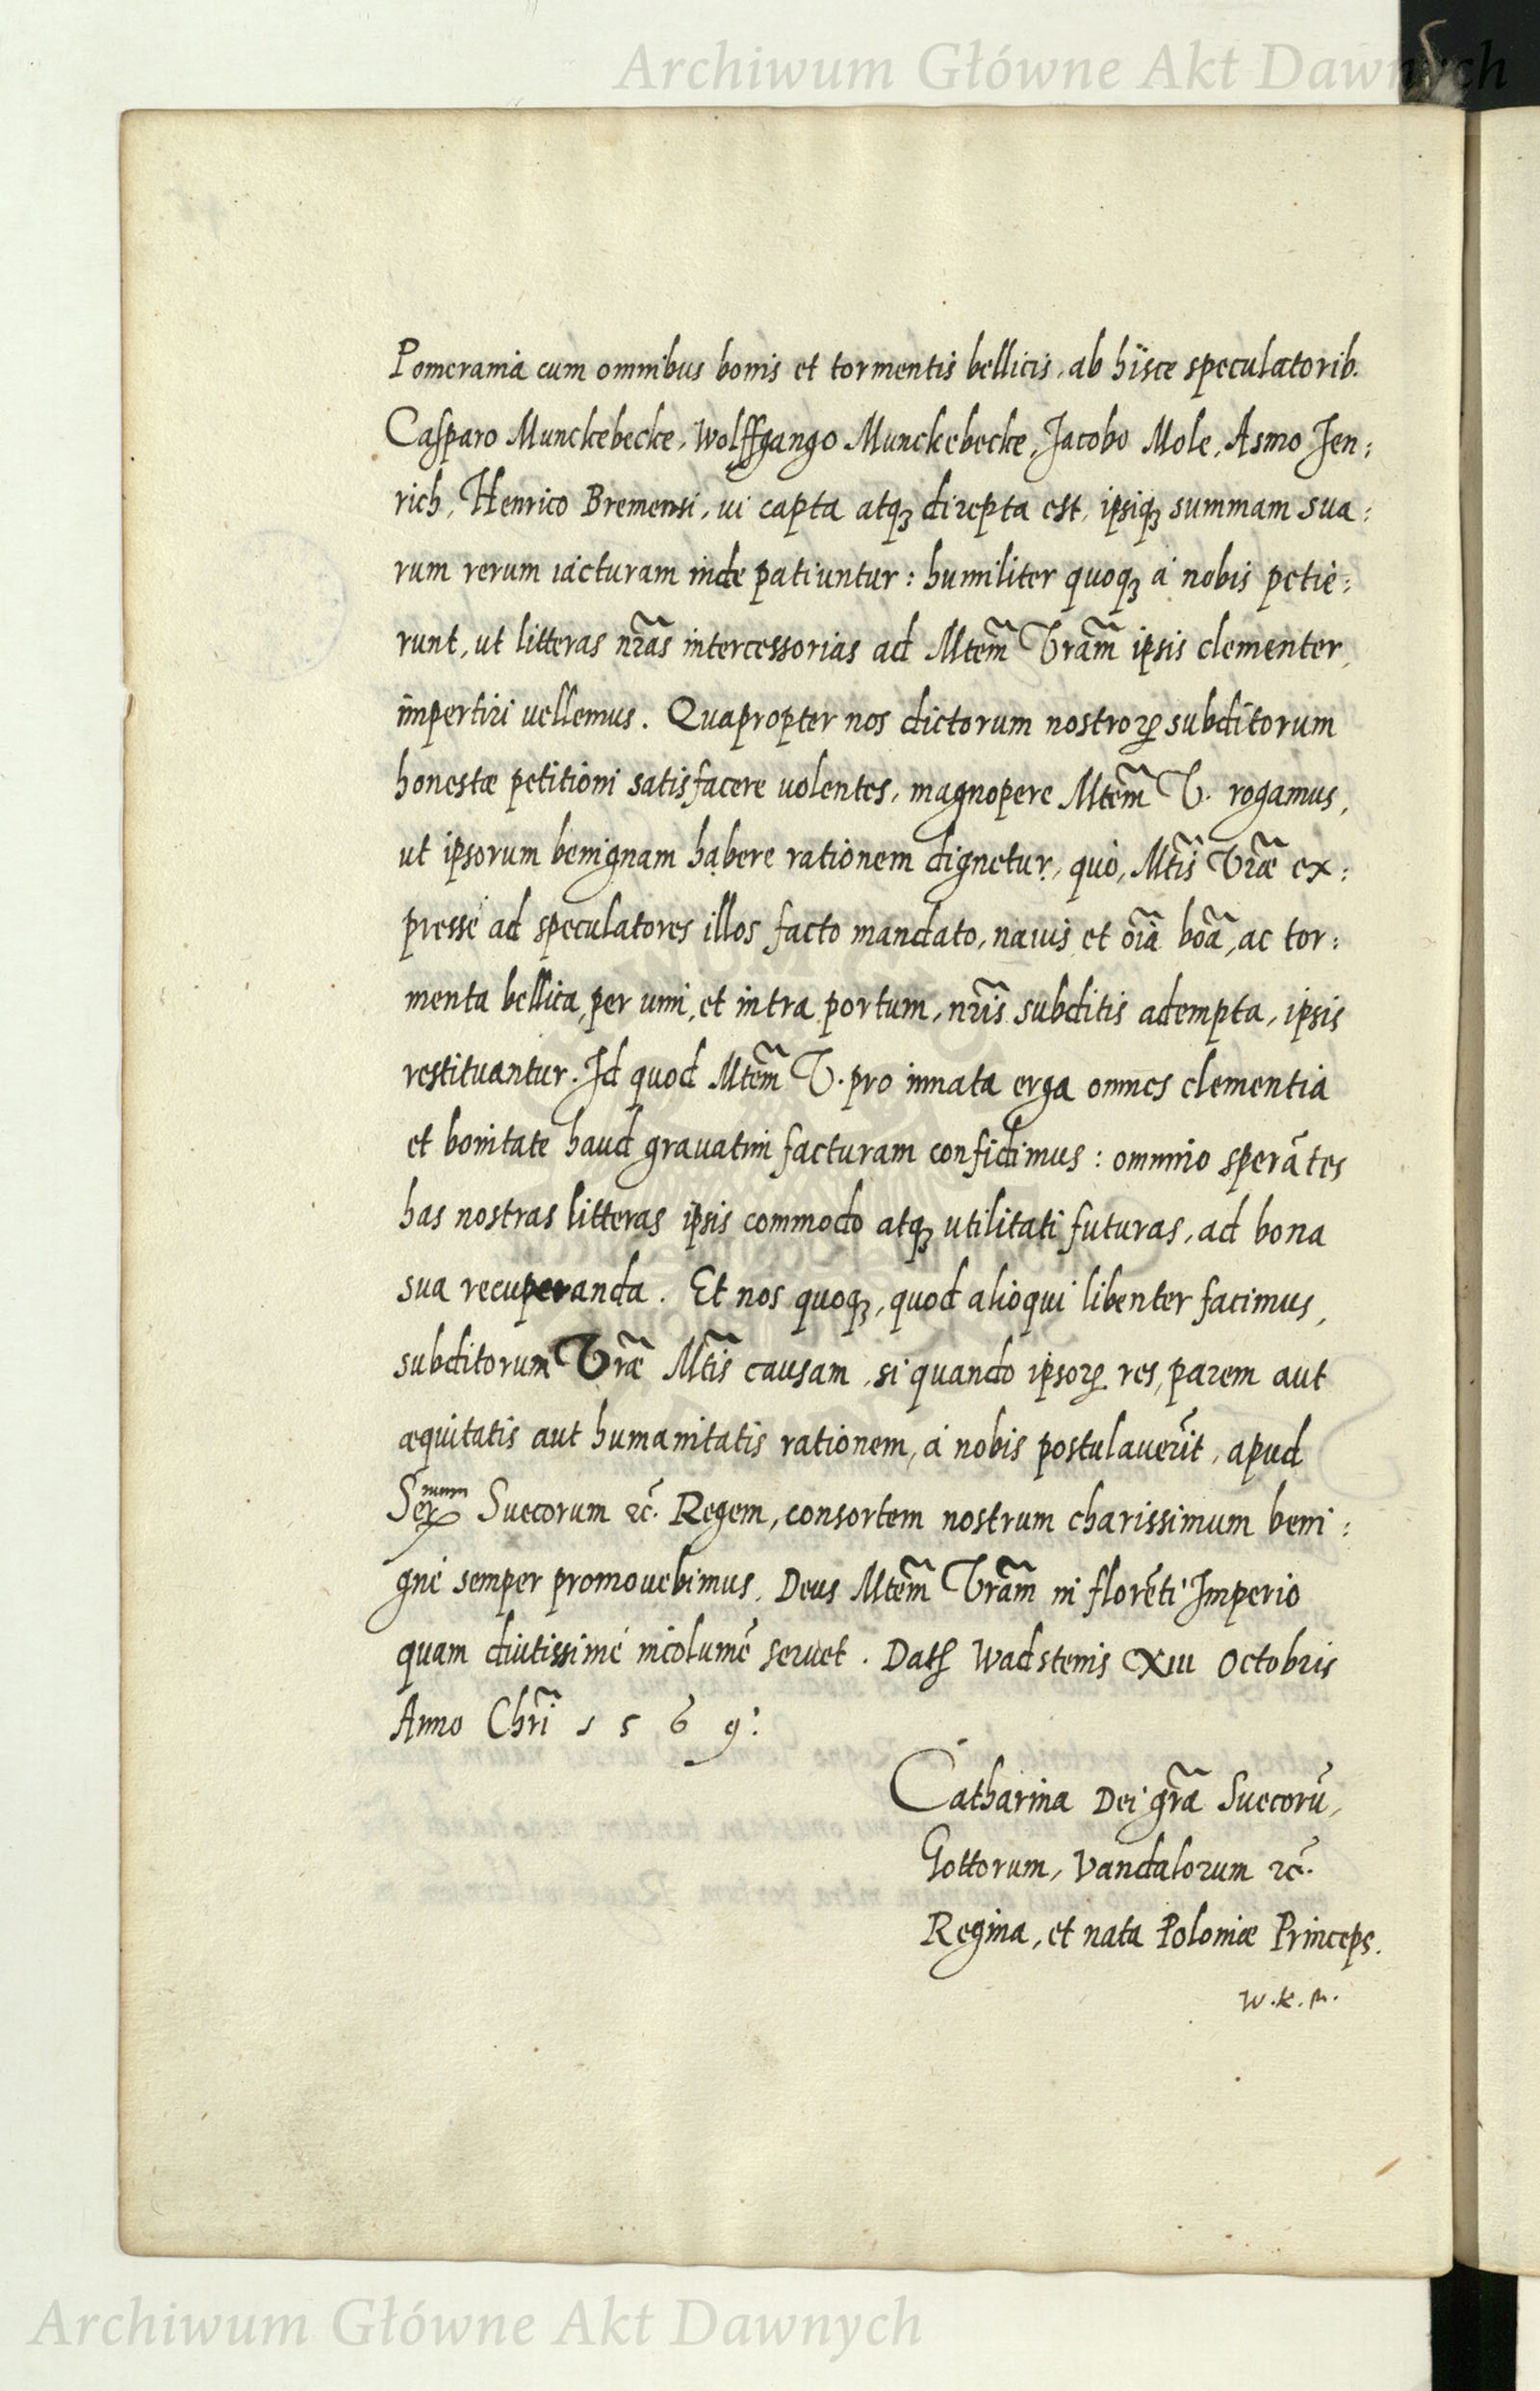 Archiwum Główne Akt Dawnych
Pomerania cum omnibus bonis et tormentis bellicis, ab hisce speculatorib.
Casparo Munckebecke, Wolffgango Munckebecke, Jacobo Mole, Asmo Jen:
rich, Henrico Bremensi, vi capta atqꝫ direpta est, ipsiqꝫ summam sua:
rum rerum iacturam inde patiuntur: humiliter quoqꝫ à nobis petie:
runt, ut litteras nr̃as intercessorias ad Mtem̃ Vram̃ ipsis clementer,
impertiri uellemus. Quapropter nos dictorum nostroꝝ subditorum
honestæ petitioni satisfacere uolentes, magnopere Mtem̃ V. rogamus,
ut ipsorum benignam habere rationem dignetur, quò, Mtis̃ Vræ̃ ex:
pressè ad speculatores illos facto mandato, nauis et oiã boã, ac tor:
menta bellica, per uim, et intra portum, nris̃ subditis adempta, ipsis
restituantur. Id quod Mtem̃ V. pro innata erga omnes clementia
et bonitate haud grauatim facturam confidimus: omnino sperãtes
has nostras litteras ipsis commodo atqꝫ utilitati futuras, ad bona
sua recuperanda. Et nos quoqꝫ, quod alioqui libenter facimus,
subditorum Vræ̃ Mtis̃ causam, si quando ipsoꝝ res, parem aut
æquitatis aut humanitatis rationem, à nobis postulauerīt, apud
Ser.mum Suecorum ꝛc̃. Regem, consortem nostrum charissimum beni:
gnè semper promouebimus. Deus Mtem̃ Vram̃ in florēti Imperio
quam diutissimè incolumē seruet. Datꝭ Wadstenis XIII Octobris
Anno Chrĩ 1 5 6 9:
Catharina Dei grã Suecorũ,
Gottorum, Vandalorum ꝛc̃.
Regina, et nata Poloniæ Princeps.
W. K. M.
Archiwum Główne Akt Dawnych